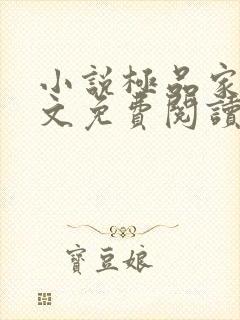 小說極品家
文免費閱讀
寶豆娘